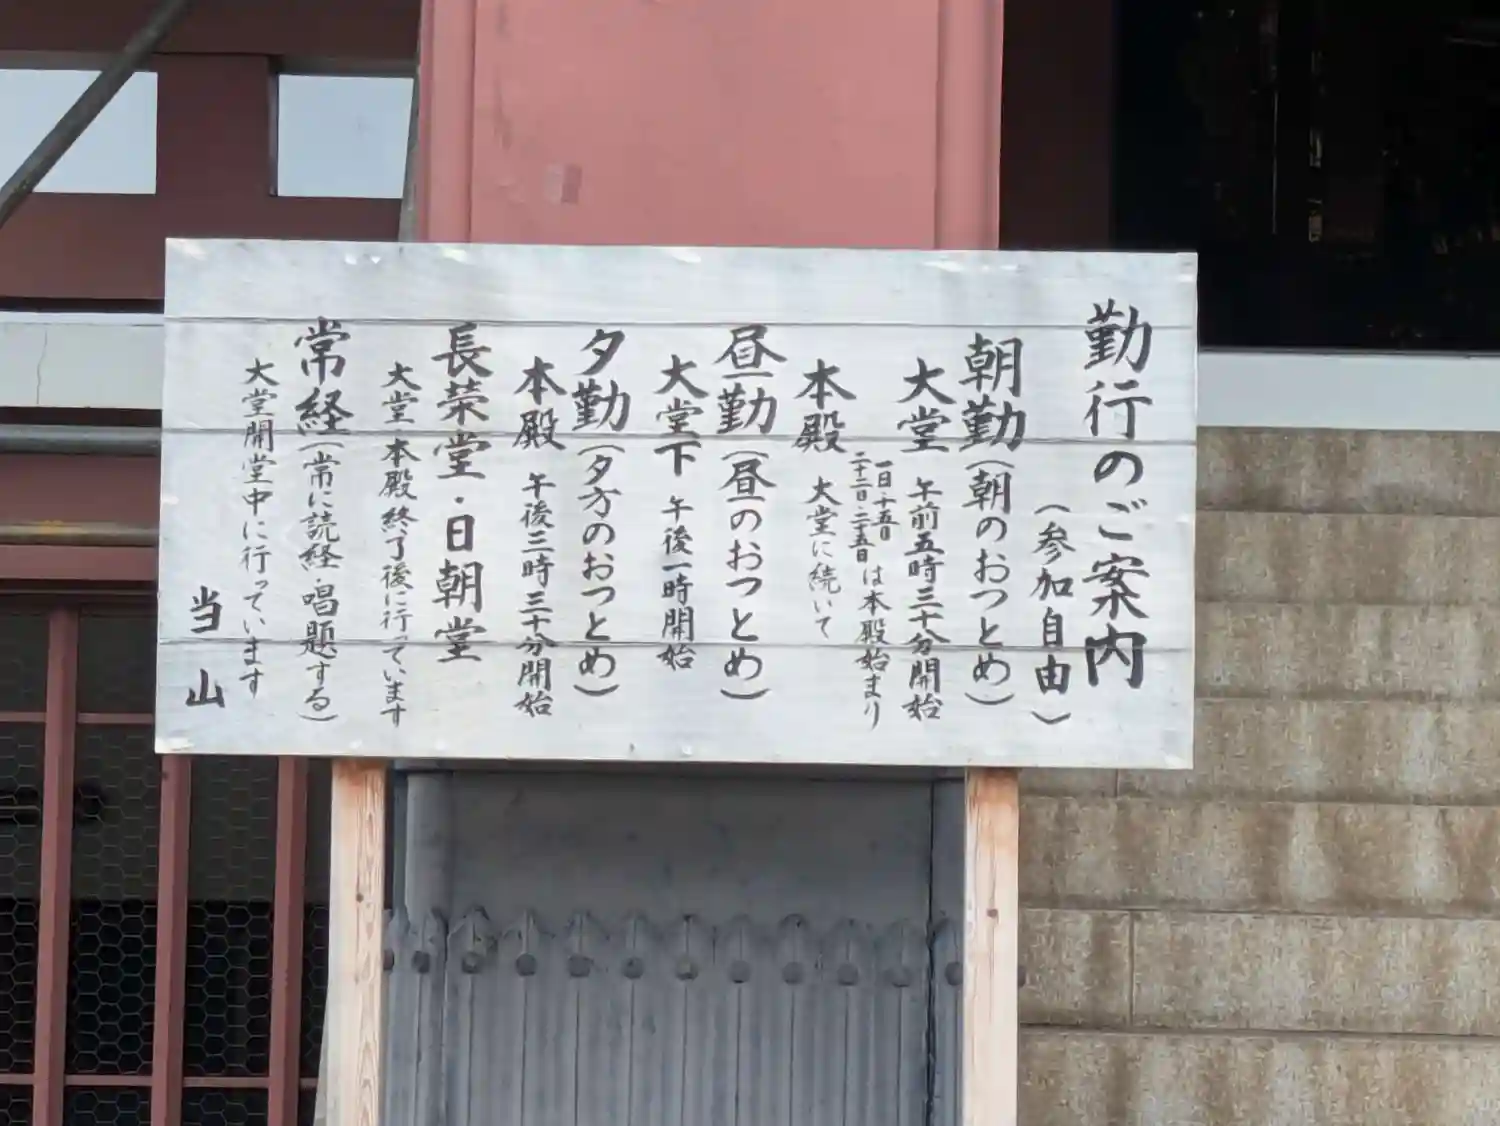 勤行のご案内
（参加自由）
朝勤（朝のおつとめ）
大堂 午前五時三十分開始
一日・十五日
二十二日・二十五日
は本殿始まり
本殿 大堂に続いて
昼勤（昼のおつとめ）
大堂下 午後一時開始
夕勤（夕方のおつとめ）
本殿 午後三時三十分開始
長栄堂・日朝堂
大堂 本殿終了後に行っています
常経（常に読経・唱題する）
大堂開堂中に行っています
当山